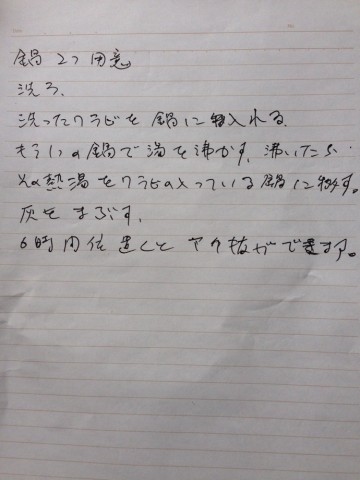 鍋2つ用意
洗う、
洗ったワラビを鍋に入れる
もう1つの鍋で湯を沸かす、沸いたら
その熱湯をワラビの入っている鍋に移す。
灰をまぶす、
6時間位置くとアク抜ができます。